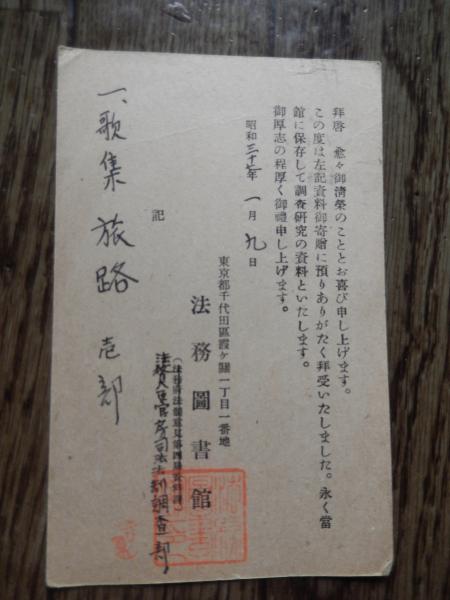 拝啓 愈々御清榮のこととお喜び申し上げます。
この度は左記資料御寄贈に預りありがたく拝受いたしました。永く當
館に保存して調査研究の資料といたします。
御厚志の程厚く御禮申し上げます。
昭和三十 年 一月九日
東京都千代田區霞ケ關一丁目一番地
法務圖書館
法務大臣官房司法法制調査部
記
一、歌集 旅路 壱部